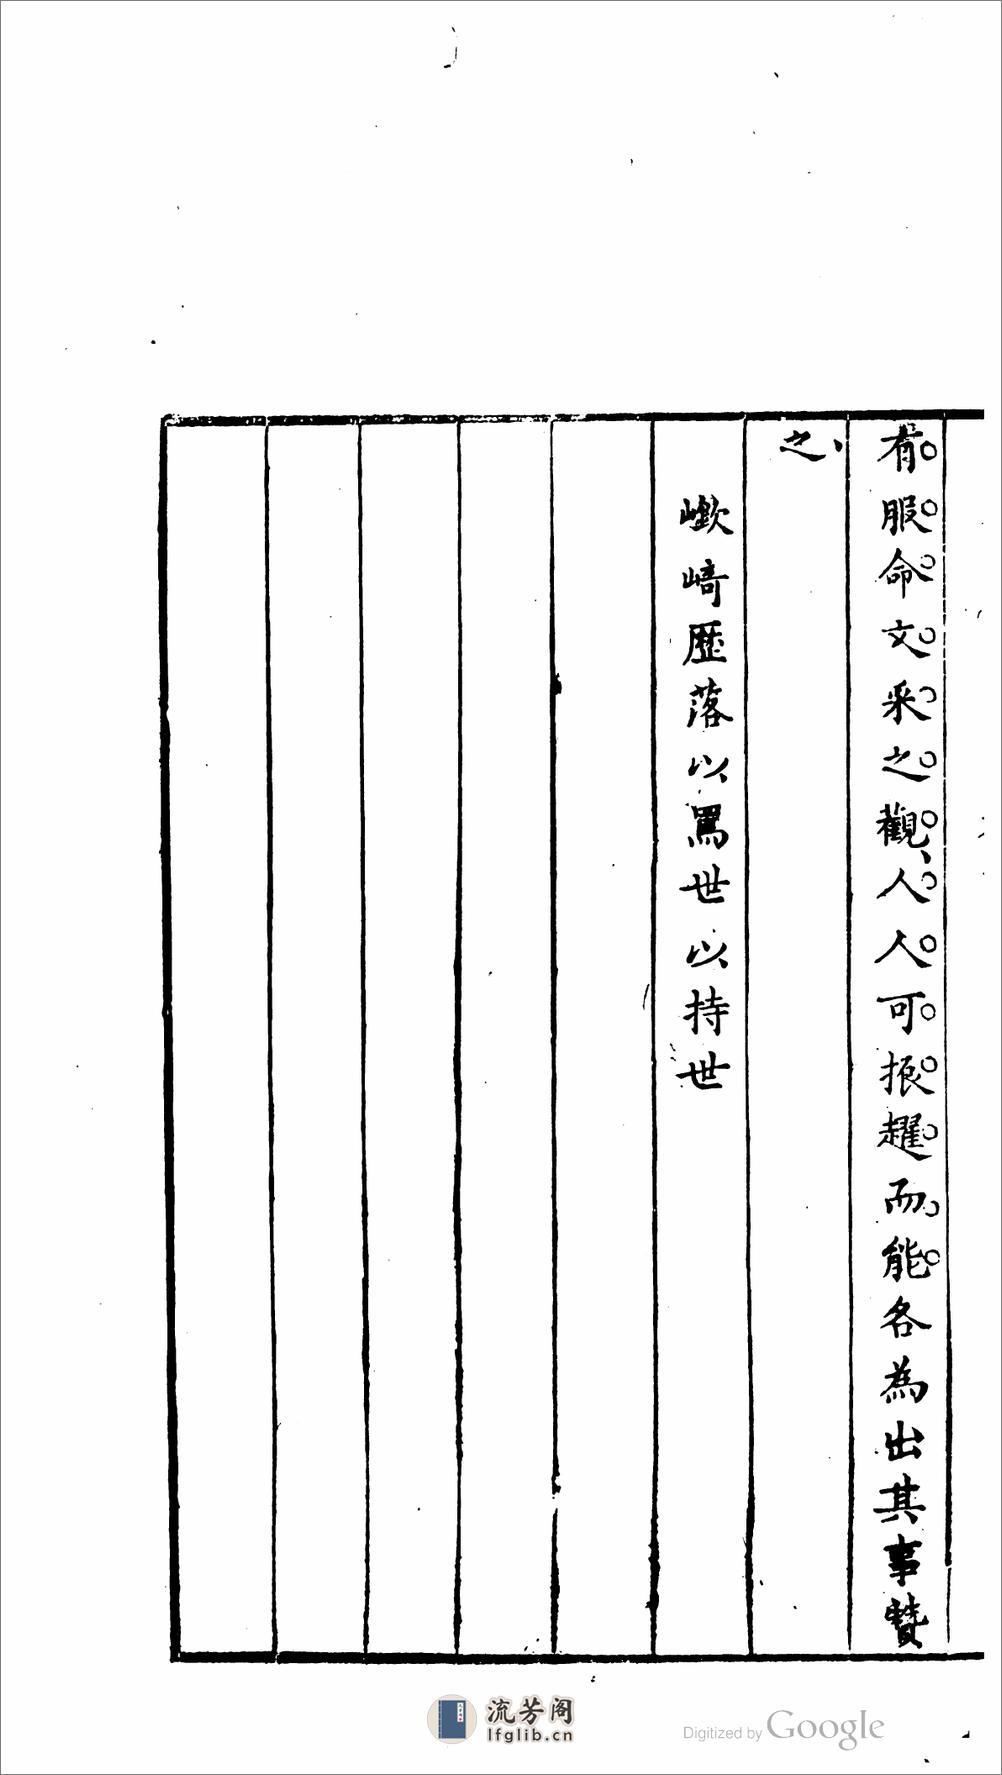 有服命文采之觀人人可振趯而能各為出其事贊
之
嶔崎歷落以罵世以持世
流芳阁
lfglib.cn
Digitized by Google